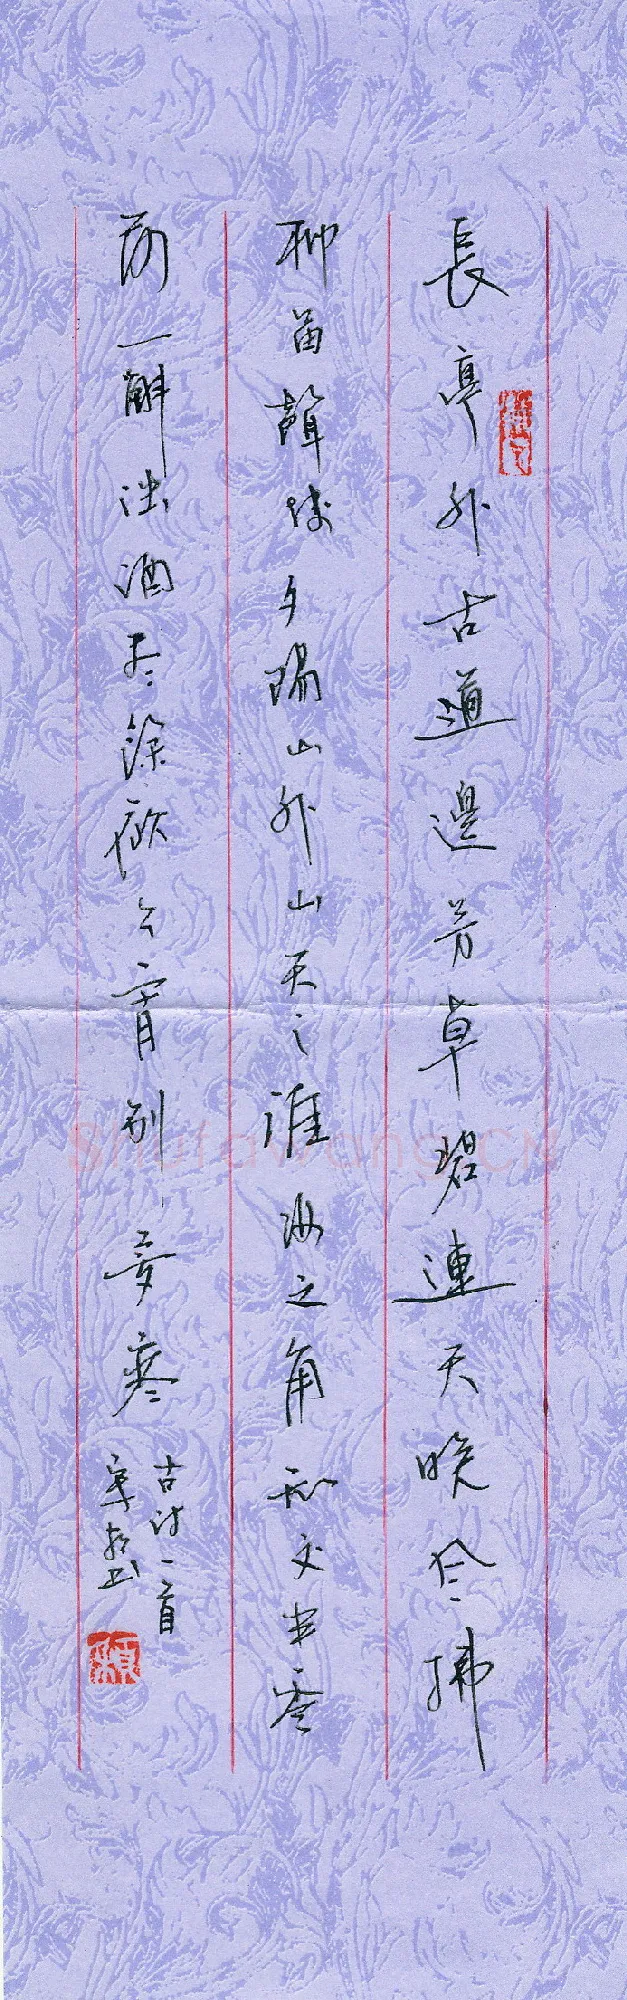 長亭外古道邊芳草碧連天晚風拂
柳笛聲殘夕陽山外山天之涯海之角知交半零
落一斛濁酒盡餘歡今宵別夢寒
古詩一首
ShufaWang.CN